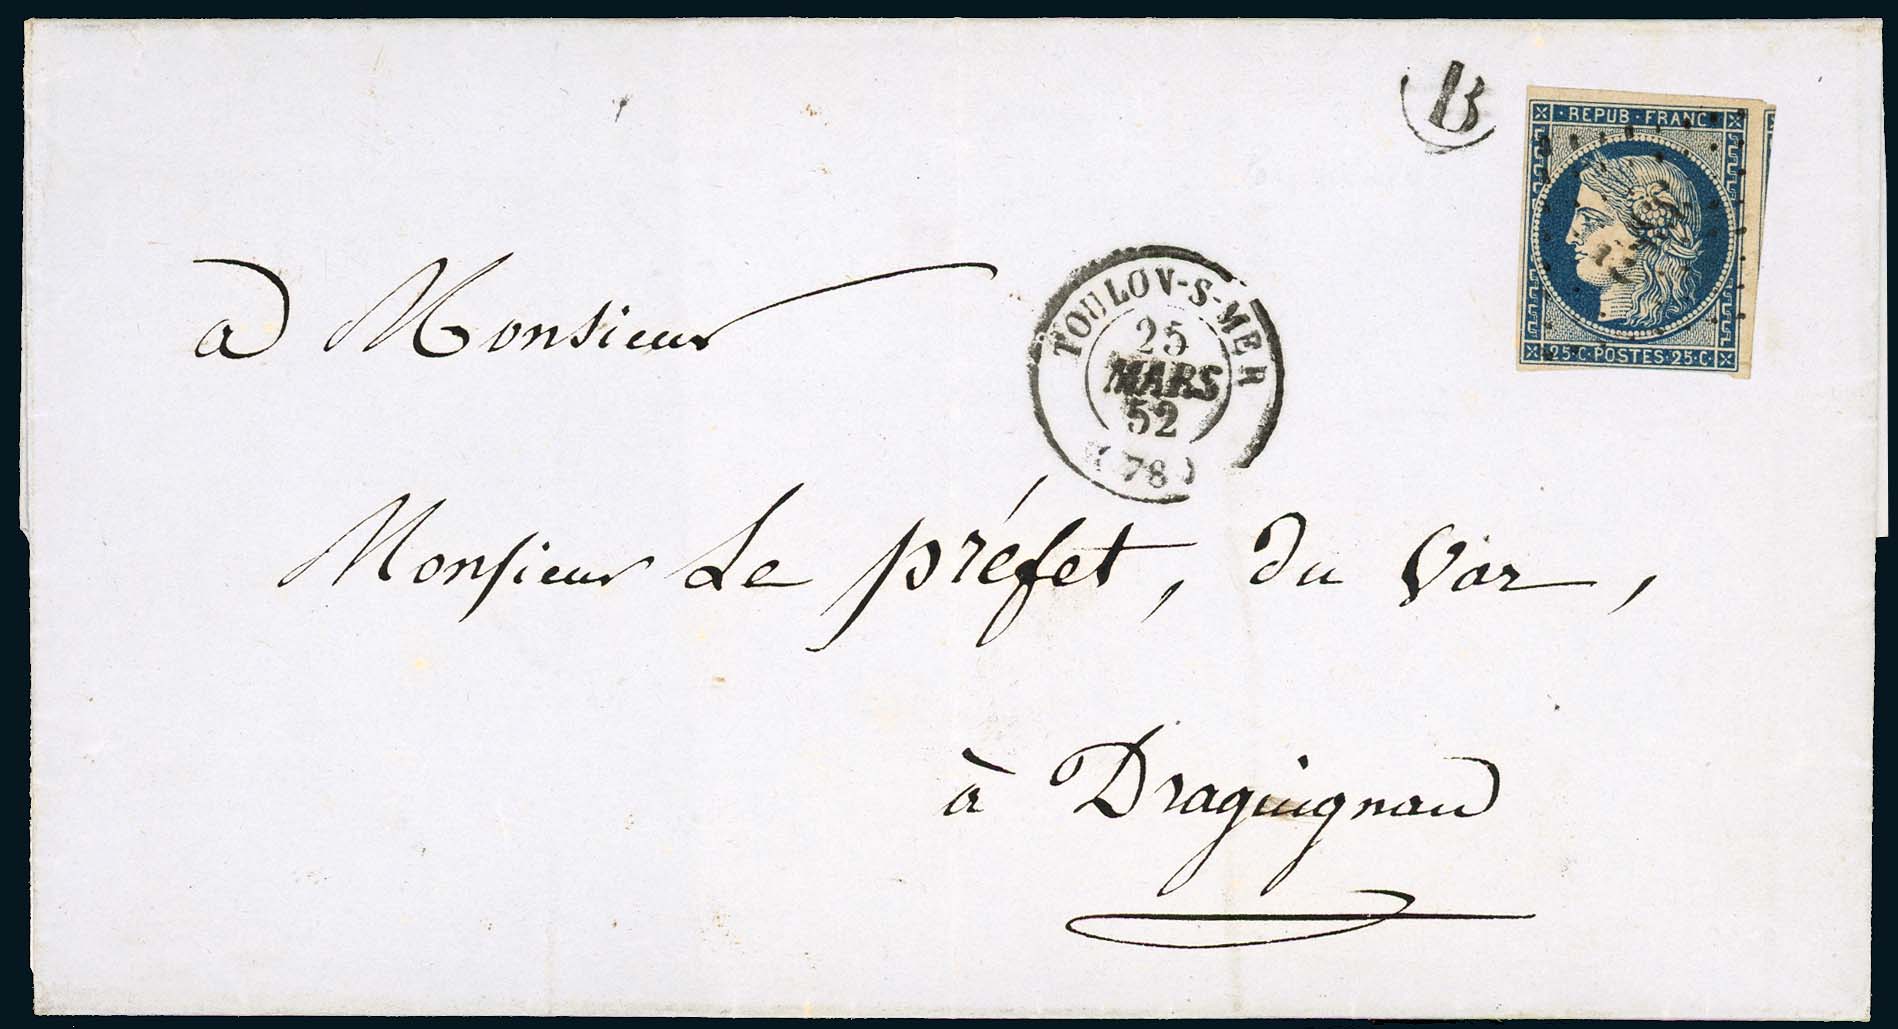 B
REPUB·FRANC
25·C·POSTES·25·C·
TOULON-S-MER
25
MARS
52
(78)
à Monsieur
Monsieur Le préfet, du Var,
à Draguignan